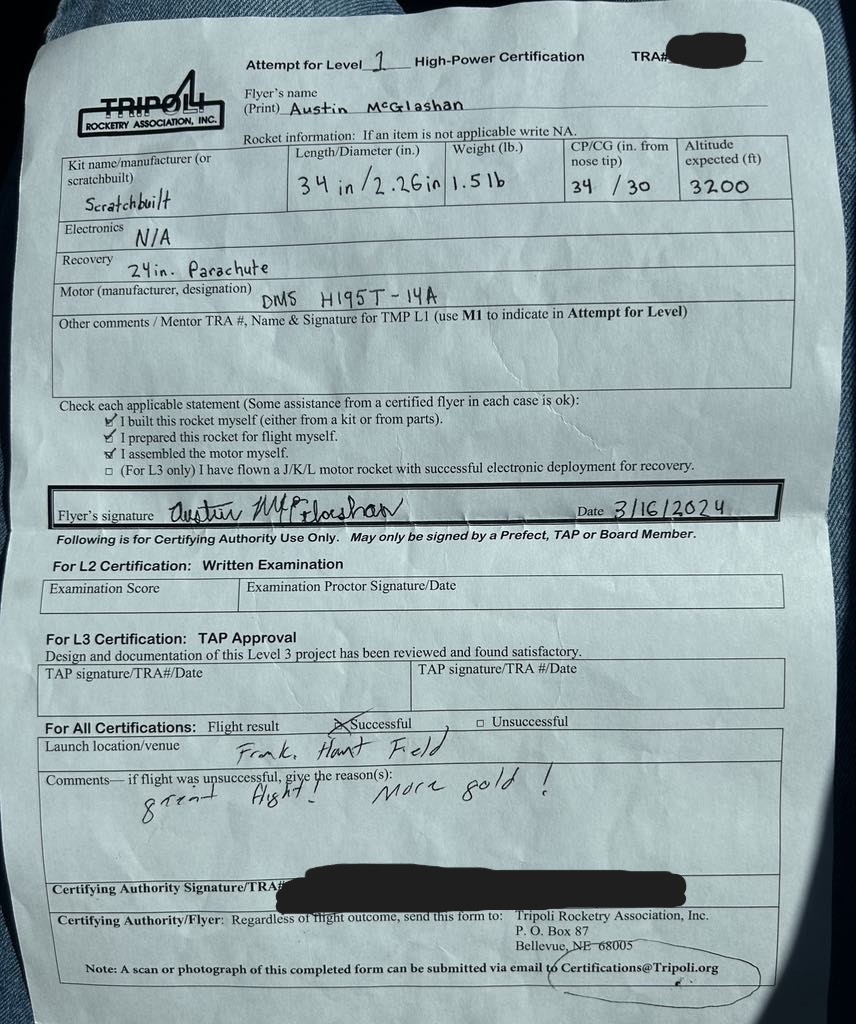 Attempt for Level 1 High-Power Certification TRA#
TRIPOLI
ROCKETRY ASSOCIATION, INC.
Flyer's name
(Print) Austin McGlashan
Rocket information: If an item is not applicable write NA.
Kit name/manufacturer (or scratchbuilt)
Scratchbuilt
Length/Diameter (in.)
34 in/2.26in
Weight (lb.)
1.5 lb
CP/CG (in. from nose tip)
34 / 30
Altitude expected (ft)
3200
Electronics N/A
Recovery 24in. Parachute
Motor (manufacturer, designation) DMS H195T-14A
Other comments / Mentor TRA #, Name & Signature for TMP L1 (use M1 to indicate in Attempt for Level)
Check each applicable statement (Some assistance from a certified flyer in each case is ok):
I built this rocket myself (either from a kit or from parts).
I prepared this rocket for flight myself.
I assembled the motor myself.
(For L3 only) I have flown a J/K/L motor rocket with successful electronic deployment for recovery.
Flyer's signature Austin McGlashan Date 3/16/2024
Following is for Certifying Authority Use Only. May only be signed by a Prefect, TAP or Board Member.
For L2 Certification: Written Examination
Examination Score
Examination Proctor Signature/Date
For L3 Certification: TAP Approval
Design and documentation of this Level 3 project has been reviewed and found satisfactory.
TAP signature/TRA#/Date
TAP signature/TRA #/Date
For All Certifications: Flight result Successful Unsuccessful
Launch location/venue Frank. Hunt Field
Comments— if flight was unsuccessful, give the reason(s):
great flight! More gold!
Certifying Authority Signature/TRA#
Certifying Authority/Flyer: Regardless of flight outcome, send this form to: Tripoli Rocketry Association, Inc.
P. O. Box 87
Bellevue, NE 68005
Note: A scan or photograph of this completed form can be submitted via email to Certifications@Tripoli.org